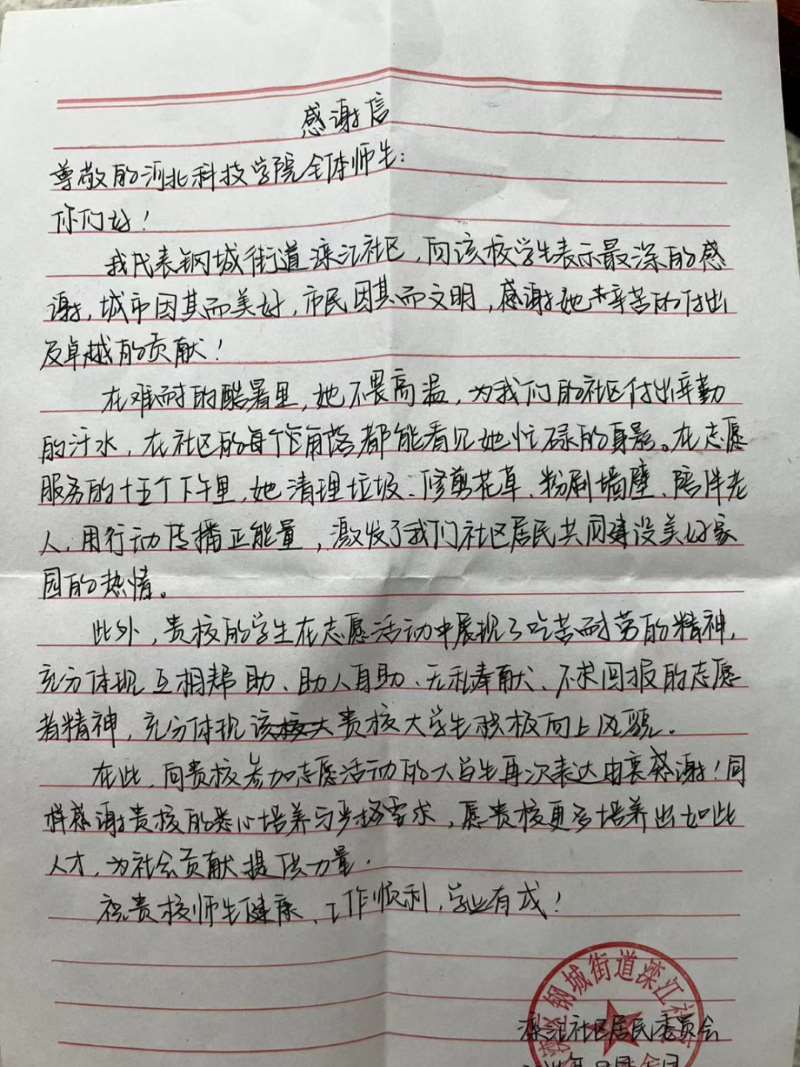 感谢信
尊敬的河北科技学院全体师生：
你们好！
我代表钢城街道滦江社区，向该校学生表示最深的感
谢，城市因其而美好，市民因其而文明，感谢她辛苦的付出
及卓越的贡献！
在难耐的酷暑里，她不畏高温，为我们的社区付出辛勤
的汗水，在社区的每个角落都能看见她忙碌的身影。在志愿
服务的十五个下午里，她清理垃圾、修剪花草、粉刷墙壁、陪伴老
人，用行动传播正能量，激发了我们社区居民共同建设美好家
园的热情。
此外，贵校的学生在志愿活动中展现了吃苦耐劳的精神，
充分体现互相帮助、助人自助、无私奉献、不求回报的志愿
者精神，充分体现该校大贵校大学生积极向上风貌。
在此，向贵校参加志愿活动的大学生再次表达由衷感谢！同
样感谢贵校的悉心培养与严格要求，愿贵校更多培养出如此
人才，为社会贡献提供力量。
祝贵校师生健康、工作顺利，学业有成！
钢城街道滦江社
滦江社区居民委员会